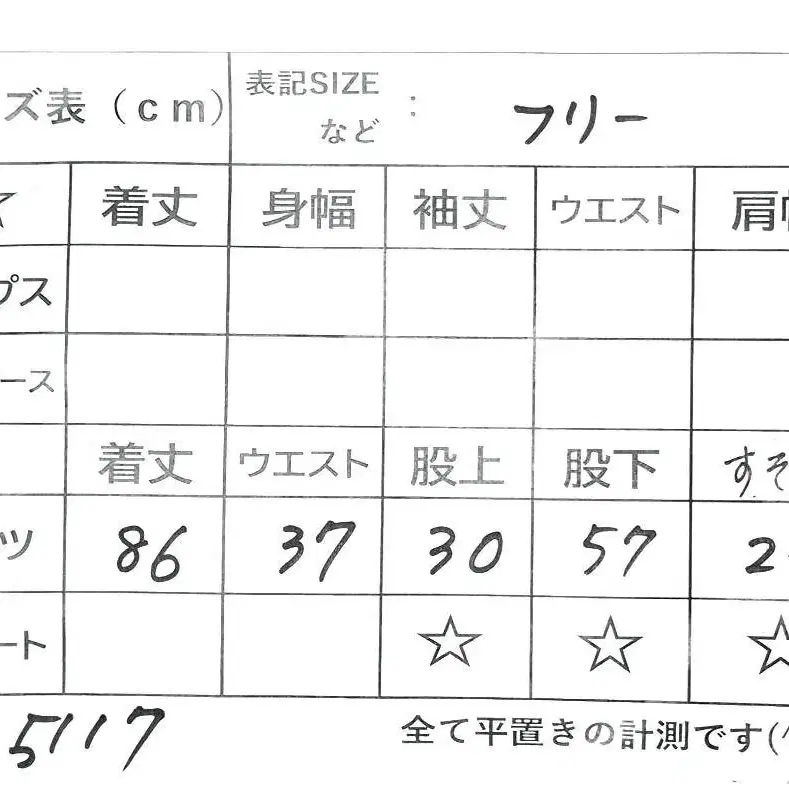 ズ表（cm） 表記SIZE など : フリー
☆ 着丈 身幅 袖丈 ウエスト 肩
プス
ース
着丈 ウエスト 股上 股下 すそ
ツ 86 37 30 57 2
ート ☆ ☆ ☆
5117 全て平置きの計測です(